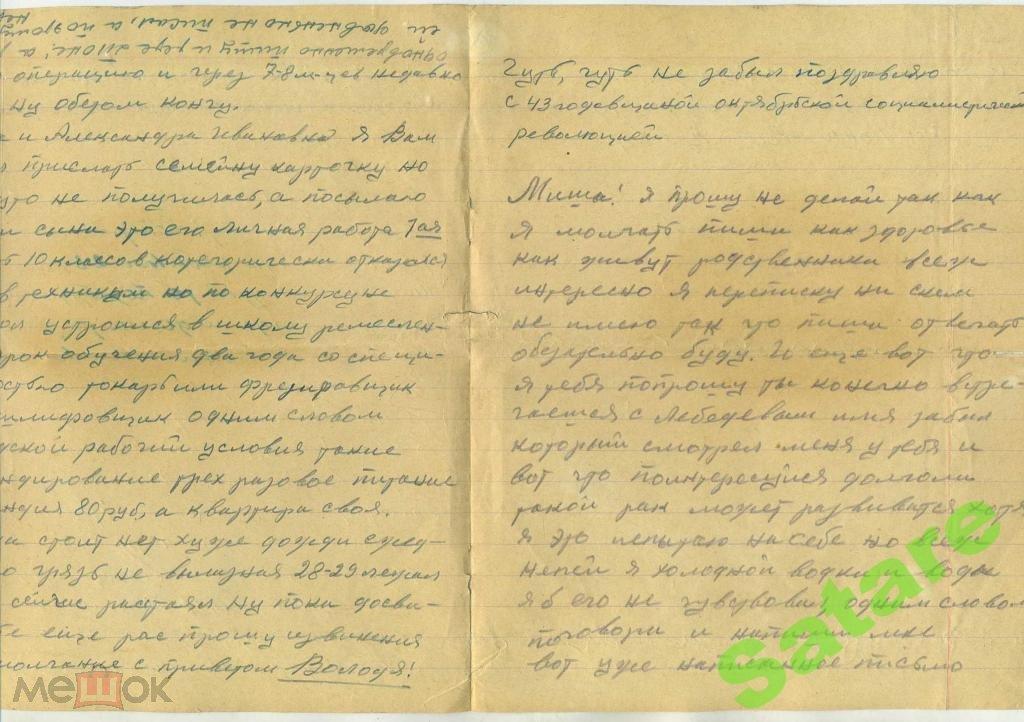 ей дровненько не писал, а поэтому
одновременно пишу и рере а
операцию и через 7-8 м-цев недавно
ну обером кончу.
и Александра Ивановна я Вам
прислать семейну карточку но
это не получилась, а посылаю
сына это его личная работа 7ая
10 классов категорически отказался
в техникум но по конкурсу не
устроился в школу ремеслен-
срок обучения два года со специ-
остью токарь или фрезировщик
шлифовщик одним словом
рабочий условия такие
трех разовое питание
80 руб, а квартира своя.
стоит нет хуже дожди след-
грязь не вылазная 28-29 лежал
сейчас растаял Ну пока досви-
еще рас прошу извинения
молчание с приветом Володя!
Чуть, чуть не забыл поздравляю
с 43 годовщиной октябрьской социалистическ
революцией
Миша! я прошу не делай так как
я молчать пиши как здоровье
как живут родственики всеже
интересно я переписку ни скем
не имею так что пиши отвечать
обезательно буду. И еще вот что
я тебя попрошу ты конечно встре-
чаешся с Лебедевым имя забыл
который смотрел меня у тебя и
вот что поинтересуйся долголи
такой рак может развиватся хотя
я это испытаю на себе но всеже
непей я холодной водки и воды
я б его не чувствовал, одним словом
поговори и напиши мне
вот уже написанное письмо
Satare
МЕШОК